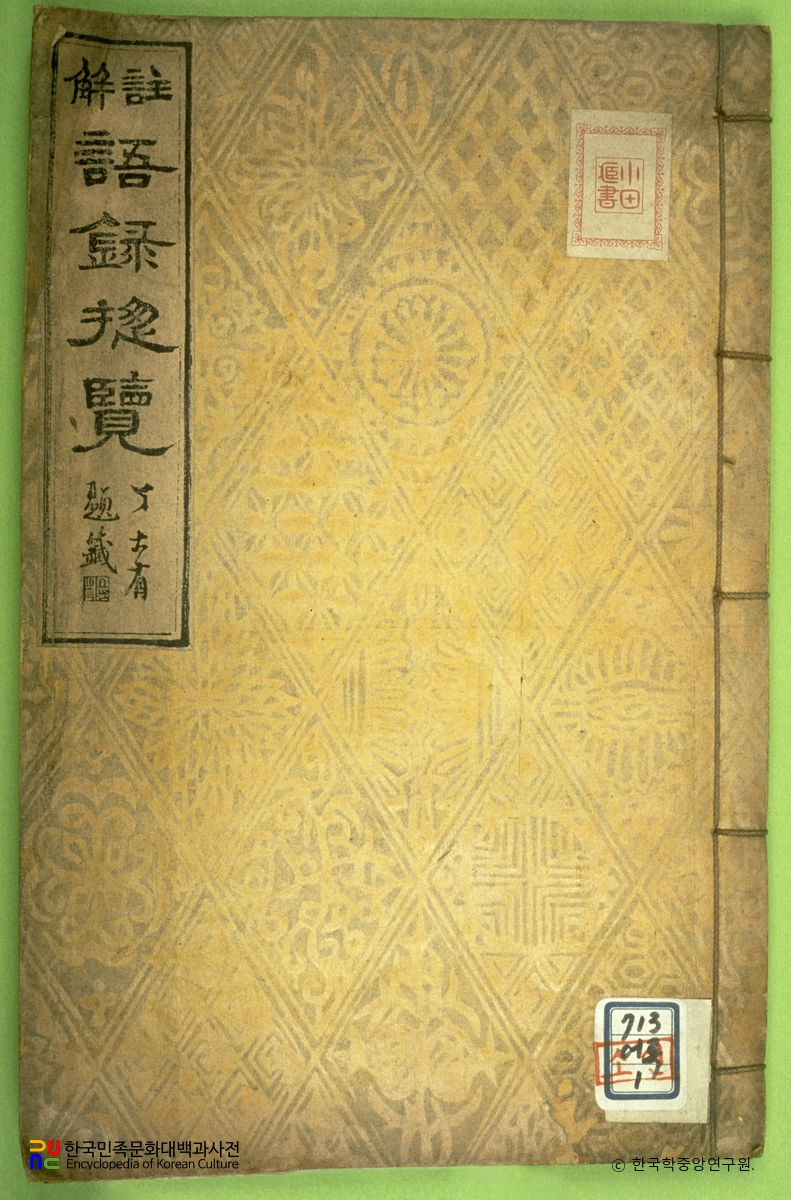 註解
語錄捴覽
丁大有
題籤
小田
書
713
1
한국민족문화대백과사전
Encyclopedia of Korean Culture
© 한국학중앙연구원.